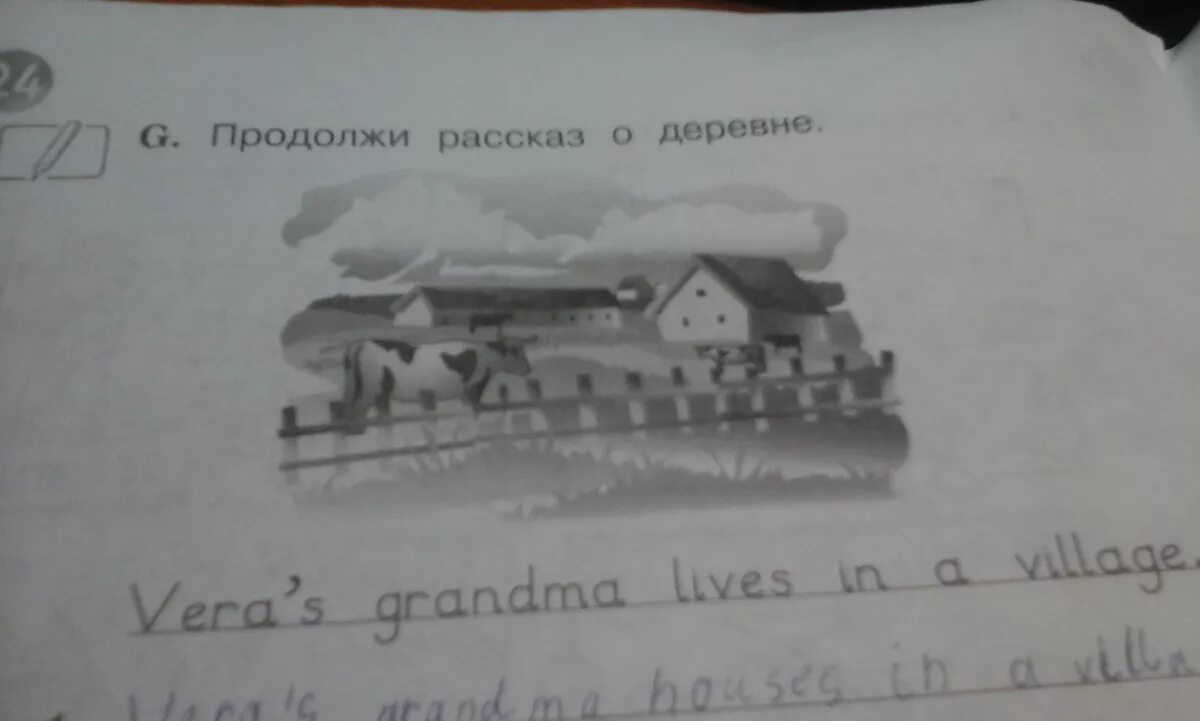 24
G. Продолжи рассказ о деревне.
Vera's grandma lives in a village.
Vera's grandma houses in a villa